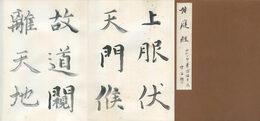 黃庭經
上服伏
天門候
故道闚
離天地